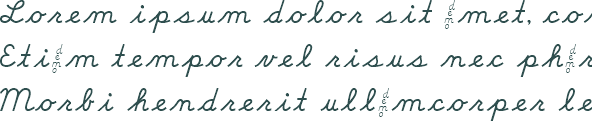 Lorem ipsum dolor sit demomet, co
Etidemom tempor vel risus nec phdemor
Morbi hendrerit ulldemomcorper le